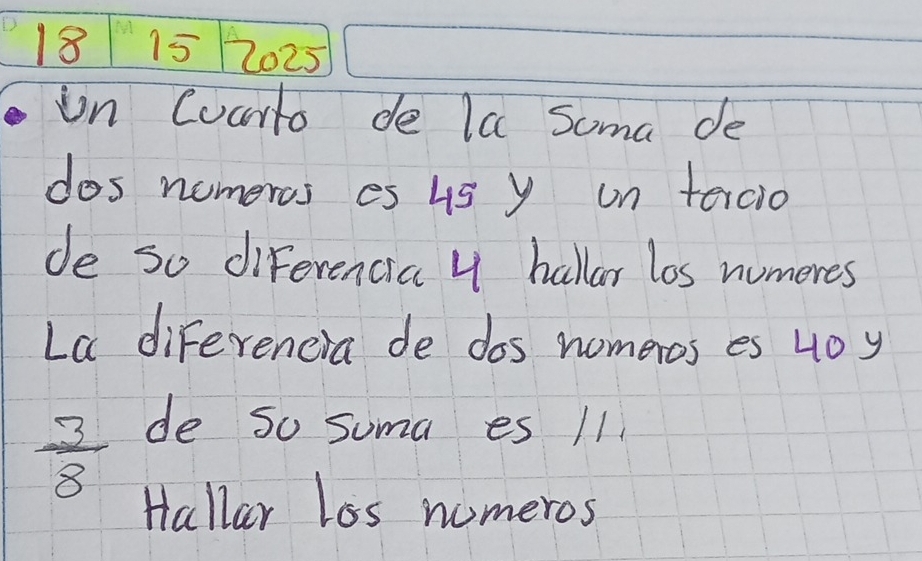 18 15 2025
• Un Cuarto de la Suma de
dos numeros es 45 y un tercio
de su diFerencia 4 hallar los numeres
La diFerencia de dos numeros es 40 y
3/8 de su suma es 11.
Hallar los numeros